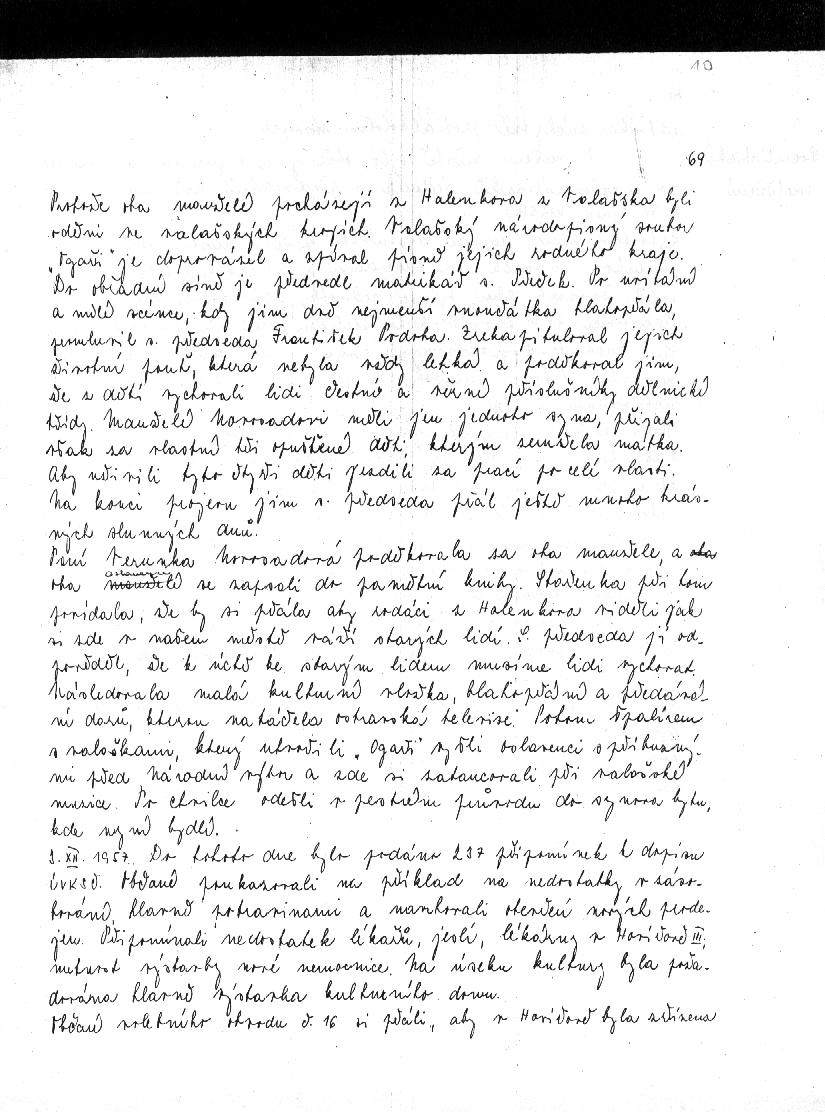 10
69
Protože oba manželé pocházejí z Halenkova z Valašska byli
oděni ve valašských krojích. Valašský národopisný soubor
„Ogaři" je doprovázel a zpíval písně jejich rodného kraje.
Do obřadní síně je předvedl matrikář s. Pleček. Po uvítání
a milé scénce, kdy jim dvě nejmenší vnoučátka blahopřála,
promluvil s. předseda František Podroha. Zrekapituloval jejich
životní pouť, která nebyla vždy lehká a poděkoval jim,
že z dětí vychovali lidi čestné a věrné příslušníky dělnické
třídy. Manželé Novosadovi měli jen jednoho syna, přijali
však za vlastní tři opuštěné děti, kterým zemřela matka.
Aby uživili tyto čtyři děti jezdili za prací po celé vlasti.
Na konci projevu jim s. předseda přál ještě mnoho krás-
ných slunných dnů.
Paní Veronka Novosadová poděkovala za oba manžele, a oba
oba oslavenci se zapsali do pamětní knihy. Stařenka při tom
povídala, že by si přála aby rodáci z Halenkova viděli jak
si zde v našem městě váží starých lidí. S. předseda jí od-
pověděl, že k úctě ke starým lidem musíme lidi vychovat.
Následovala malá kulturní vložka, blahopřání a předává-
ní darů, kterou natáčela ostravská televise. Potom špalírem
s valaškami, který utvořili „Ogaři" vyšli oslavenci s příbuzný-
mi před Národní výbor a zde si zatancovali při valašské
muzice. Po chvilce odešli v pestrém průvodu do synova bytu,
kde nyní bydlí.
9. XII. 1957. Do tohoto dne bylo podáno 237 připomínek k dopisu
ÚVKSČ. Občané poukazovali na příklad na nedostatky v záso-
bování, hlavně potravinami a navrhovali otevření nových prode-
jen. Připomínali nedostatek lékařů, jeslí, lékárny v Havířově III.
nutnost výstavby nové nemocnice. Na úseku kultury byla poža-
dována hlavně výstavba kulturního domu.
Občané volebního obvodu č. 16 si přáli, aby v Havířově byla zřízena